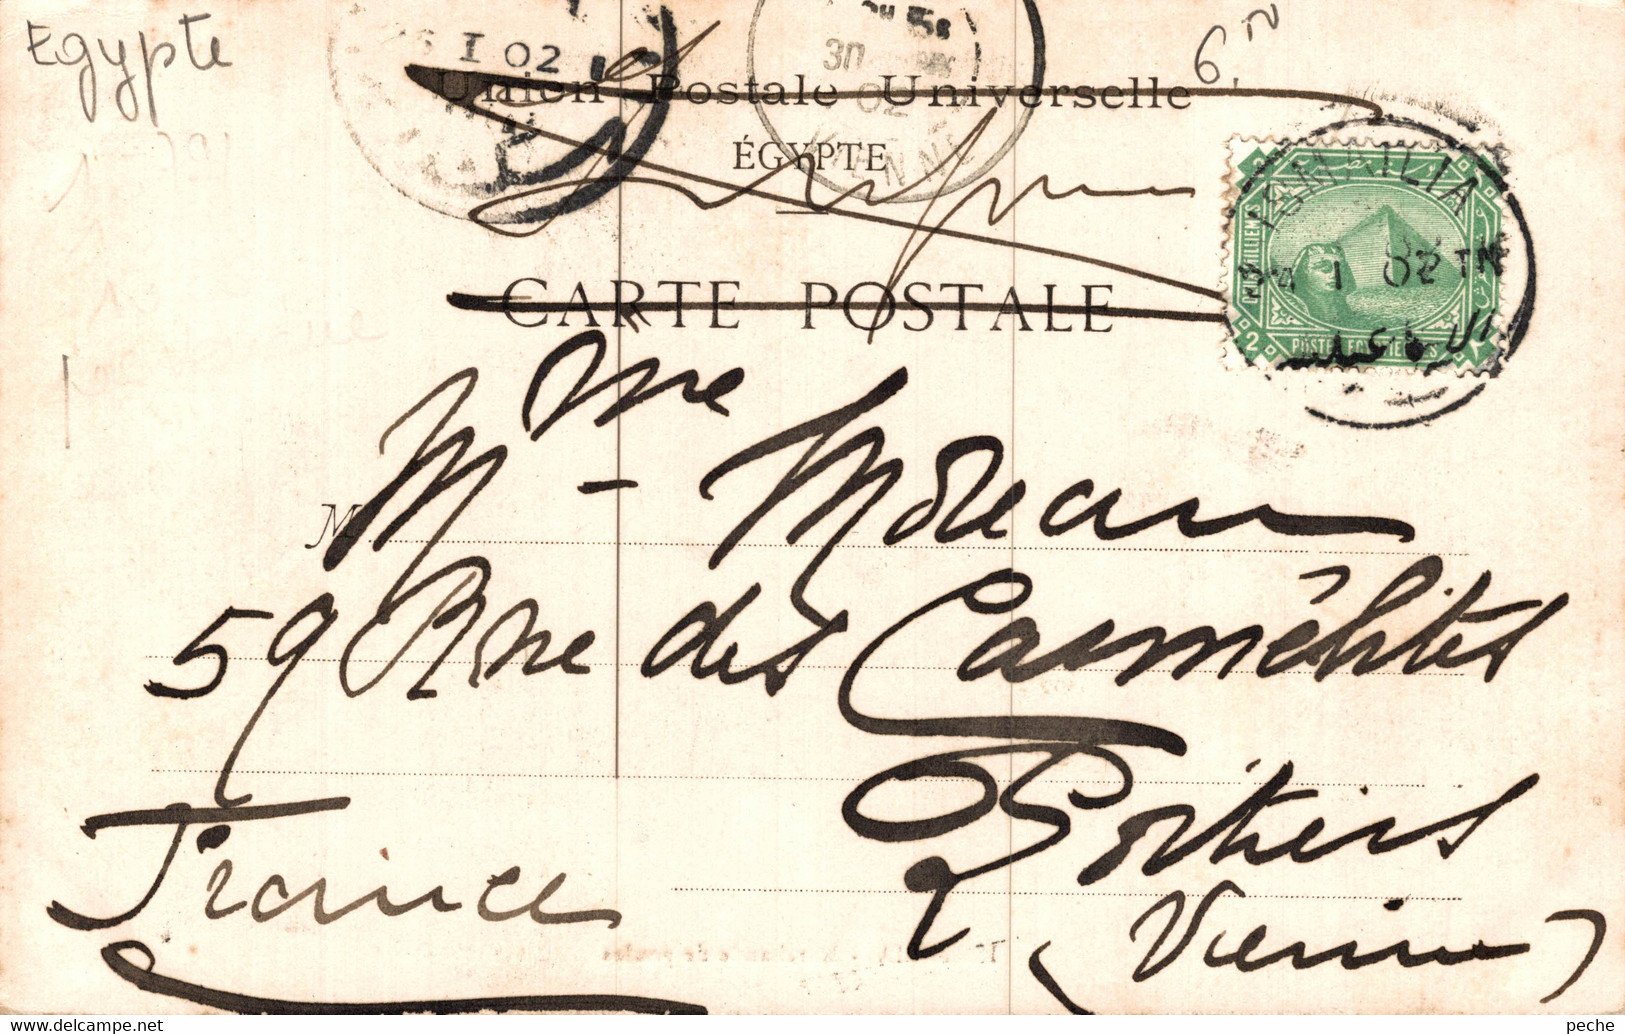 Egypte
6
I 02
30
02
ENNE
Union Postale Universelle
ÉGYPTE
CARTE POSTALE
ISMAILIA
I 02
2
2
POSTES EGYPTIENNES
M
Mme - Moreau
59 Rue des Carmélites
Poitiers
(Vienne)
France
peche